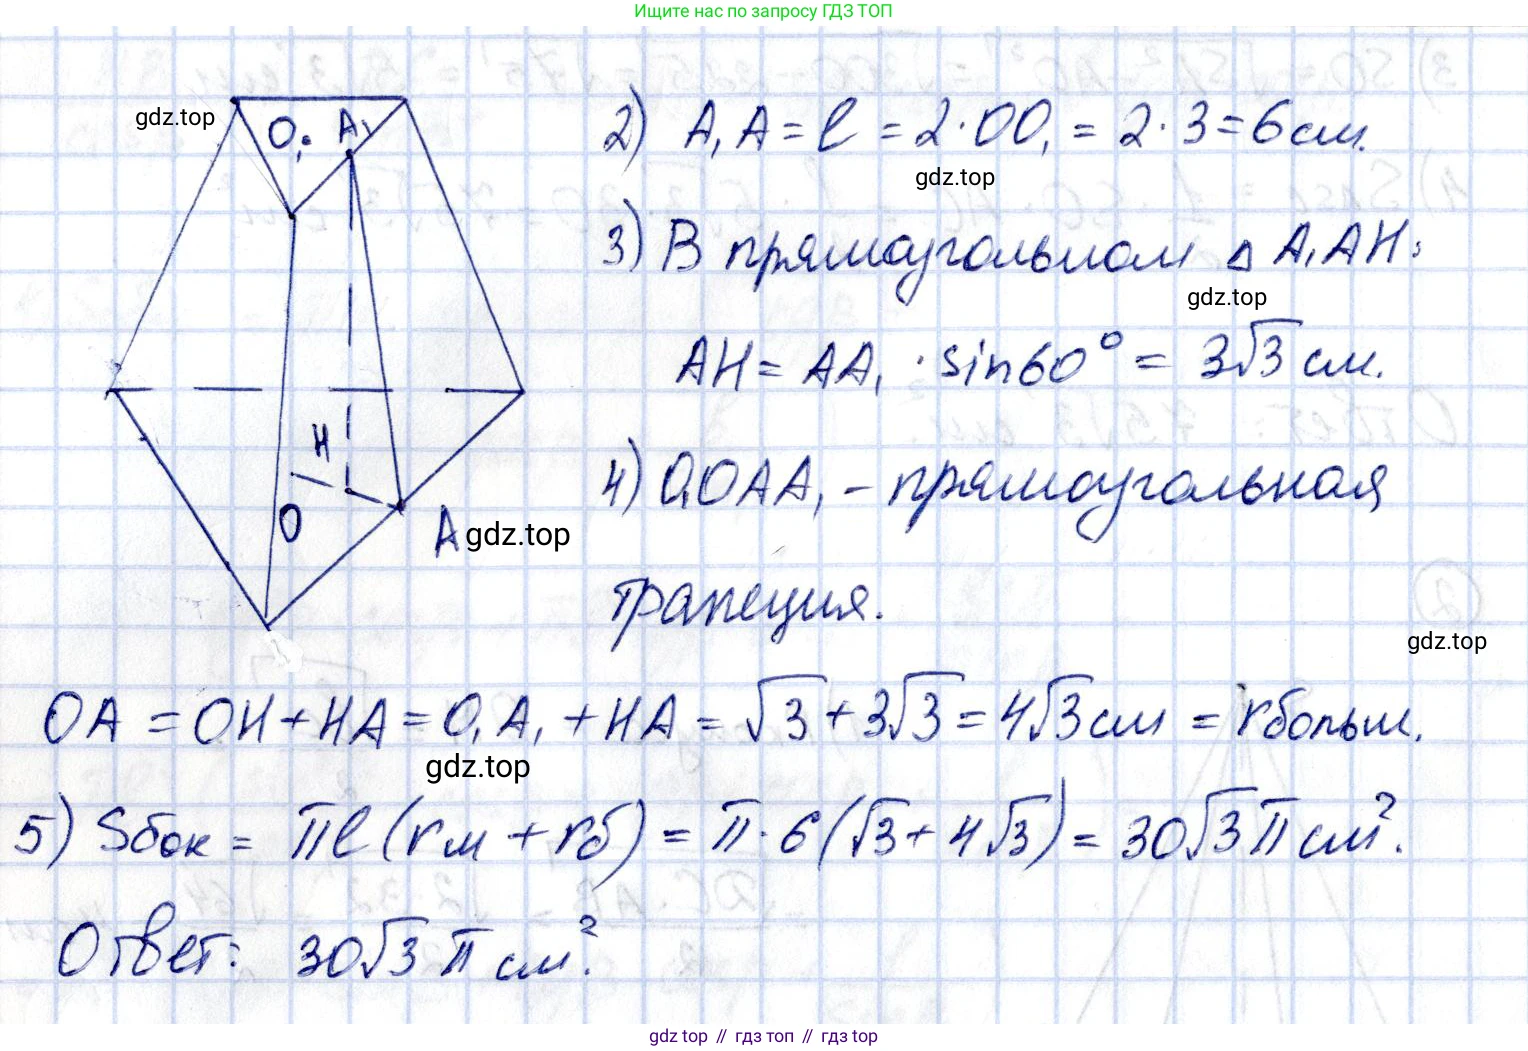 Ищите нас по запросу ГДЗ ТОП
gdz.top
O₁ A₁
2) A₁A = l = 2·OO₁ = 2·3 = 6 см.
gdz.top
3) В прямоугольном △ A₁AH:
gdz.top
AH = AA₁ · sin60° = 3√3 см.
H
O
A gdz.top
4) O₁OAA₁ – прямоугольная
трапеция.
gdz.top
OA = OH + HA = O₁A₁ + HA = √3 + 3√3 = 4√3 см = rбольш.
gdz.top
5) Sбок = πl (rм + rб) = π·6(√3 + 4√3) = 30√3 π см².
Ответ: 30√3 π см².
gdz top // гдз топ // гдз top